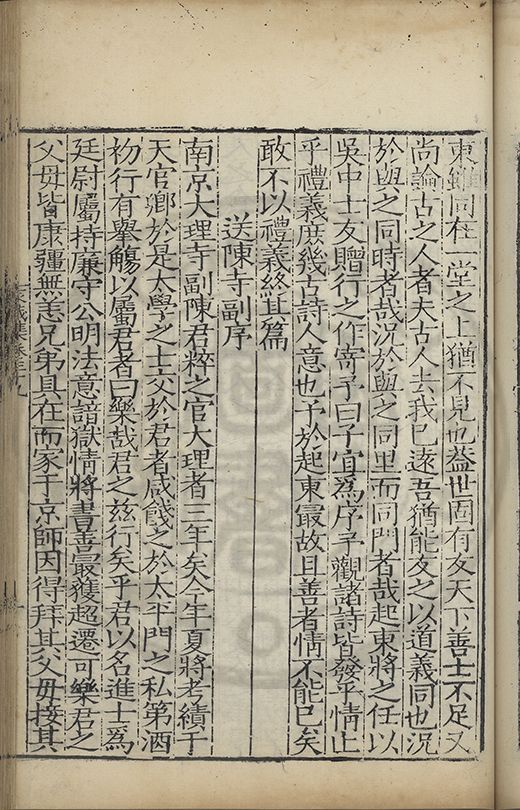 東雖同在一堂之上猶不見也益世固有友天下善士不足又
尚論古之人者夫古人去我已遠吾猶能友之以道義同也況
於與之同時者哉況於與之同里而同門者哉起東將之任以
吳中士友贈行之作寄予曰子宜為序予觀諸詩皆發乎情止
乎禮義庶幾古詩人意也予於起東冣故且善者情不能已矣
敢不以禮義終其篇
送陳寺副序
南京大理寺副陳君粹之官大理者三年矣今年夏將考績于
天官卿於是太學之士交於君者咸餞之於太平門之私第酒
初行有舉觴以屬君者曰樂哉君之茲行矣乎君以名進士為
廷尉屬持廉守公明法意諳獄情將書善最獲超遷可樂君之
父母皆康彊無恙兄弟具在而家于京師因得拜其父母接其